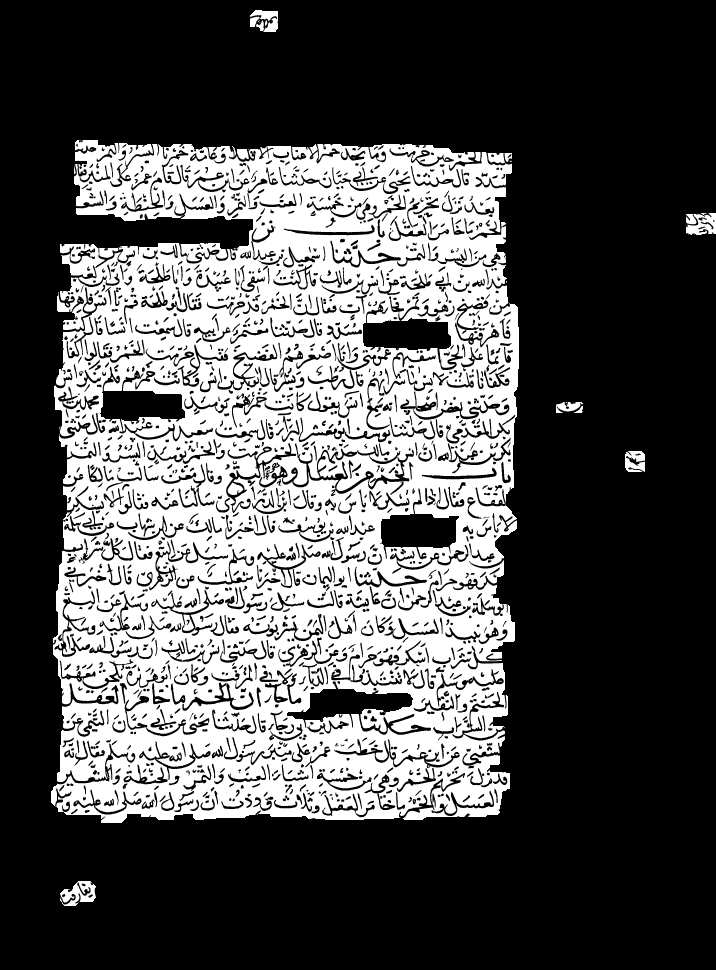 علينا الخمر حين حرمت وما نجد خمر الاعناب الا قليلا وعامة خمرنا البسر والتمر حدثنا
مسدد قال حدثنا يحيى عن ابي حيان حدثنا عامر عن ابن عمر قال قام عمر على المنبر فقال
بعد نزل تحريم الخمر وهي من خمسة العنب والتمر والعسل والحنطة والشعير
والخمر ما خامر العقل باب نزل
وهي من البسر والتمر حدثنا اسمعيل بن عبد الله قال حدثني مالك بن انس عن اسحق بن
عبد الله بن ابي طلحة عن انس بن مالك قال كنت اسقي ابا عبيدة وابا طلحة وابي بن كعب
من فضيخ زهو وتمر فجاءهم آت فقال ان الخمر قد حرمت فقال ابو طلحة قم يا انس فاهرقها
فاهرقتها مسدد قال حدثنا معتمر عن ابيه قال سمعت انسا قال كنت
قائما على الحي اسقيهم عمومتي وانا اصغرهم الفضيخ فقيل حرمت الخمر فقالوا اكفأها
فكفأنا قلت لانس ما شرابهم قال رطب وبسر فقال ابو بكر بن انس وكانت خمرهم فلم ينكر انس
وحدثني بعض اصحابي انه سمع انس يقول كانت خمرهم يومئذ محمد بن ابي
بكر المقدمي قال حدثنا يوسف ابو معشر البراء قال سمعت سعيد بن عبيد الله قال حدثني
بكر بن عبد الله ان انس بن مالك حدثهم ان الخمر حرمت والخمر يومئذ البسر والتمر
باب الخمر من العسل وهو البتع وقال معن سالت مالكا عن
الفقاع فقال اذا لم يسكر فلا باس به وقال ابن الدراوردي سالنا عنه فقالوا لا يسكر
لا باس به عبد الله بن يوسف قال اخبرنا مالك عن ابن شهاب عن ابي سلمة
بن عبد الرحمن عن عايشة ان رسول الله صلى الله عليه وسلم سئل عن البتع فقال كل شراب
اسكر فهو حرام حدثنا ابو اليمان قال اخبرنا شعيب عن الزهري قال اخبرني
ابو سلمة بن عبد الرحمن ان عايشة قالت سئل رسول الله صلى الله عليه وسلم عن البتع
وهو نبيذ العسل وكان اهل اليمن يشربونه فقال رسول الله صلى الله عليه وسلم
كل شراب اسكر فهو حرام وعن الزهري قال حدثني انس بن مالك ان رسول الله صلى الله
عليه وسلم قال لا تنتبذوا في الدباء ولا في المزفت وكان ابو هريرة يلحق معهما
الحنتم والنقير ما جاء ان الخمر ما خامر العقل
من الشراب حدثنا احمد بن ابي رجاء قال حدثنا يحيى عن ابي حيان التيمي عن
الشعبي عن ابن عمر قال خطب عمر على منبر رسول الله صلى الله عليه وسلم فقال انه
قد نزل تحريم الخمر وهي من خمسة اشياء العنب والتمر والحنطة والشعير
والعسل والخمر ما خامر العقل وثلاث وددت ان رسول الله صلى الله عليه وسلم
يفارقنا